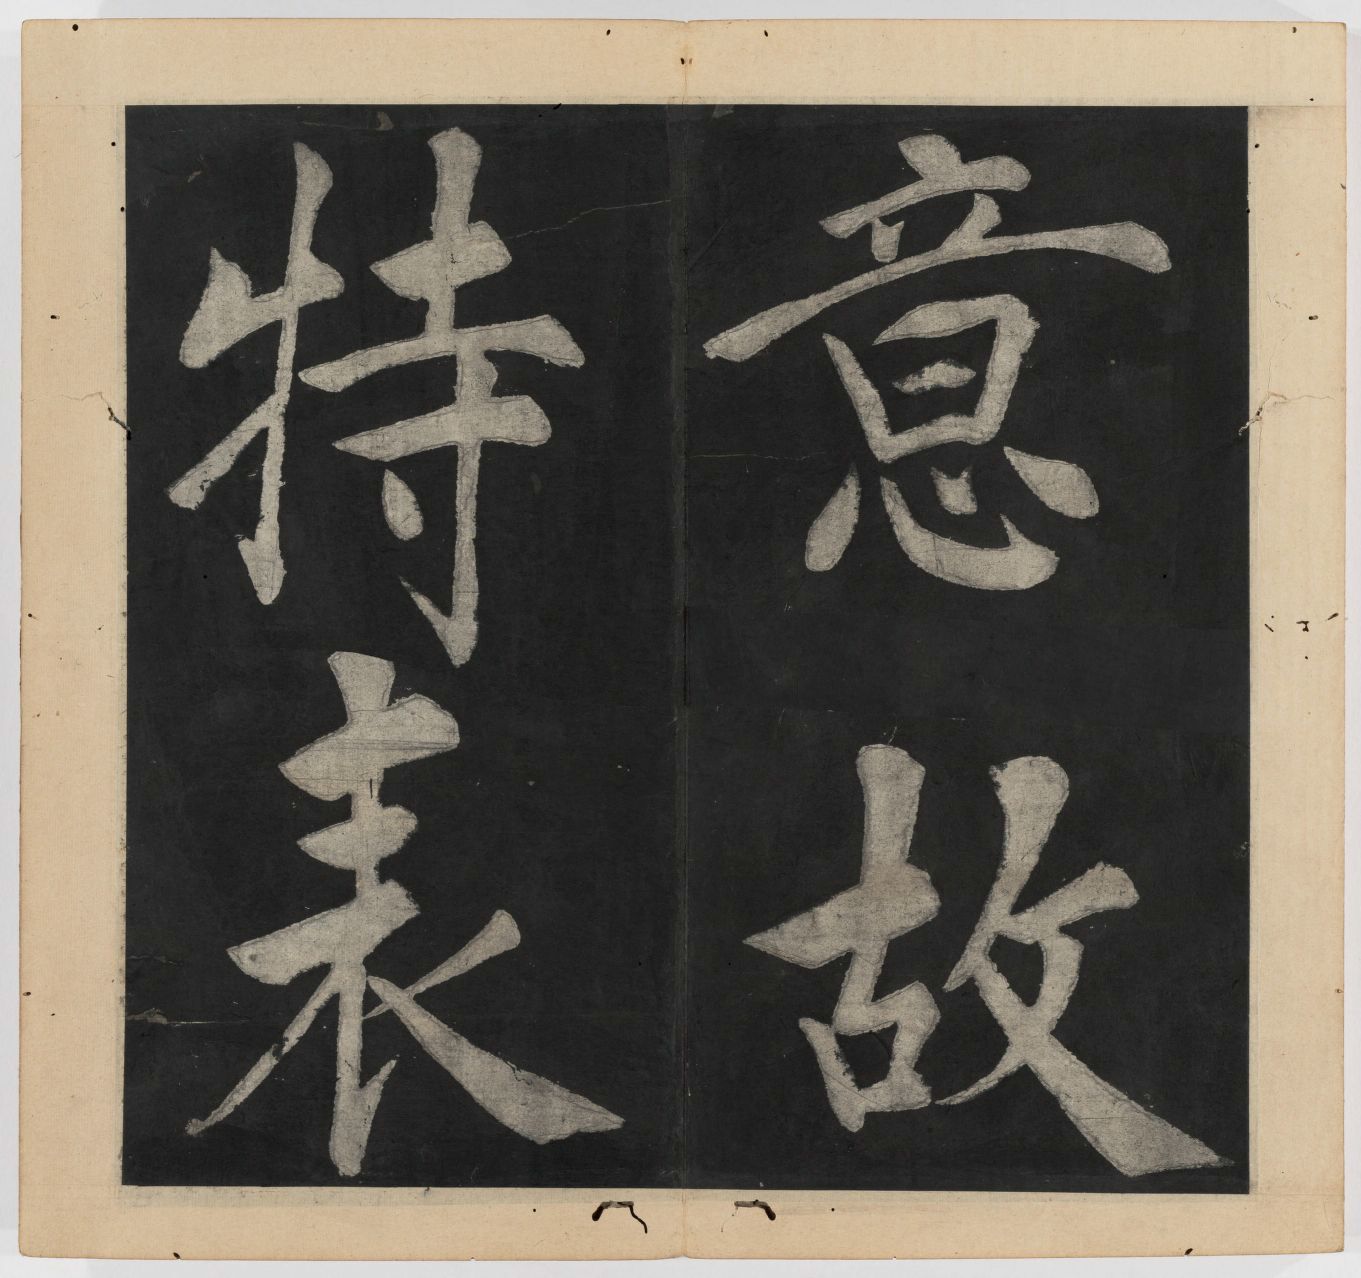 意故
特表